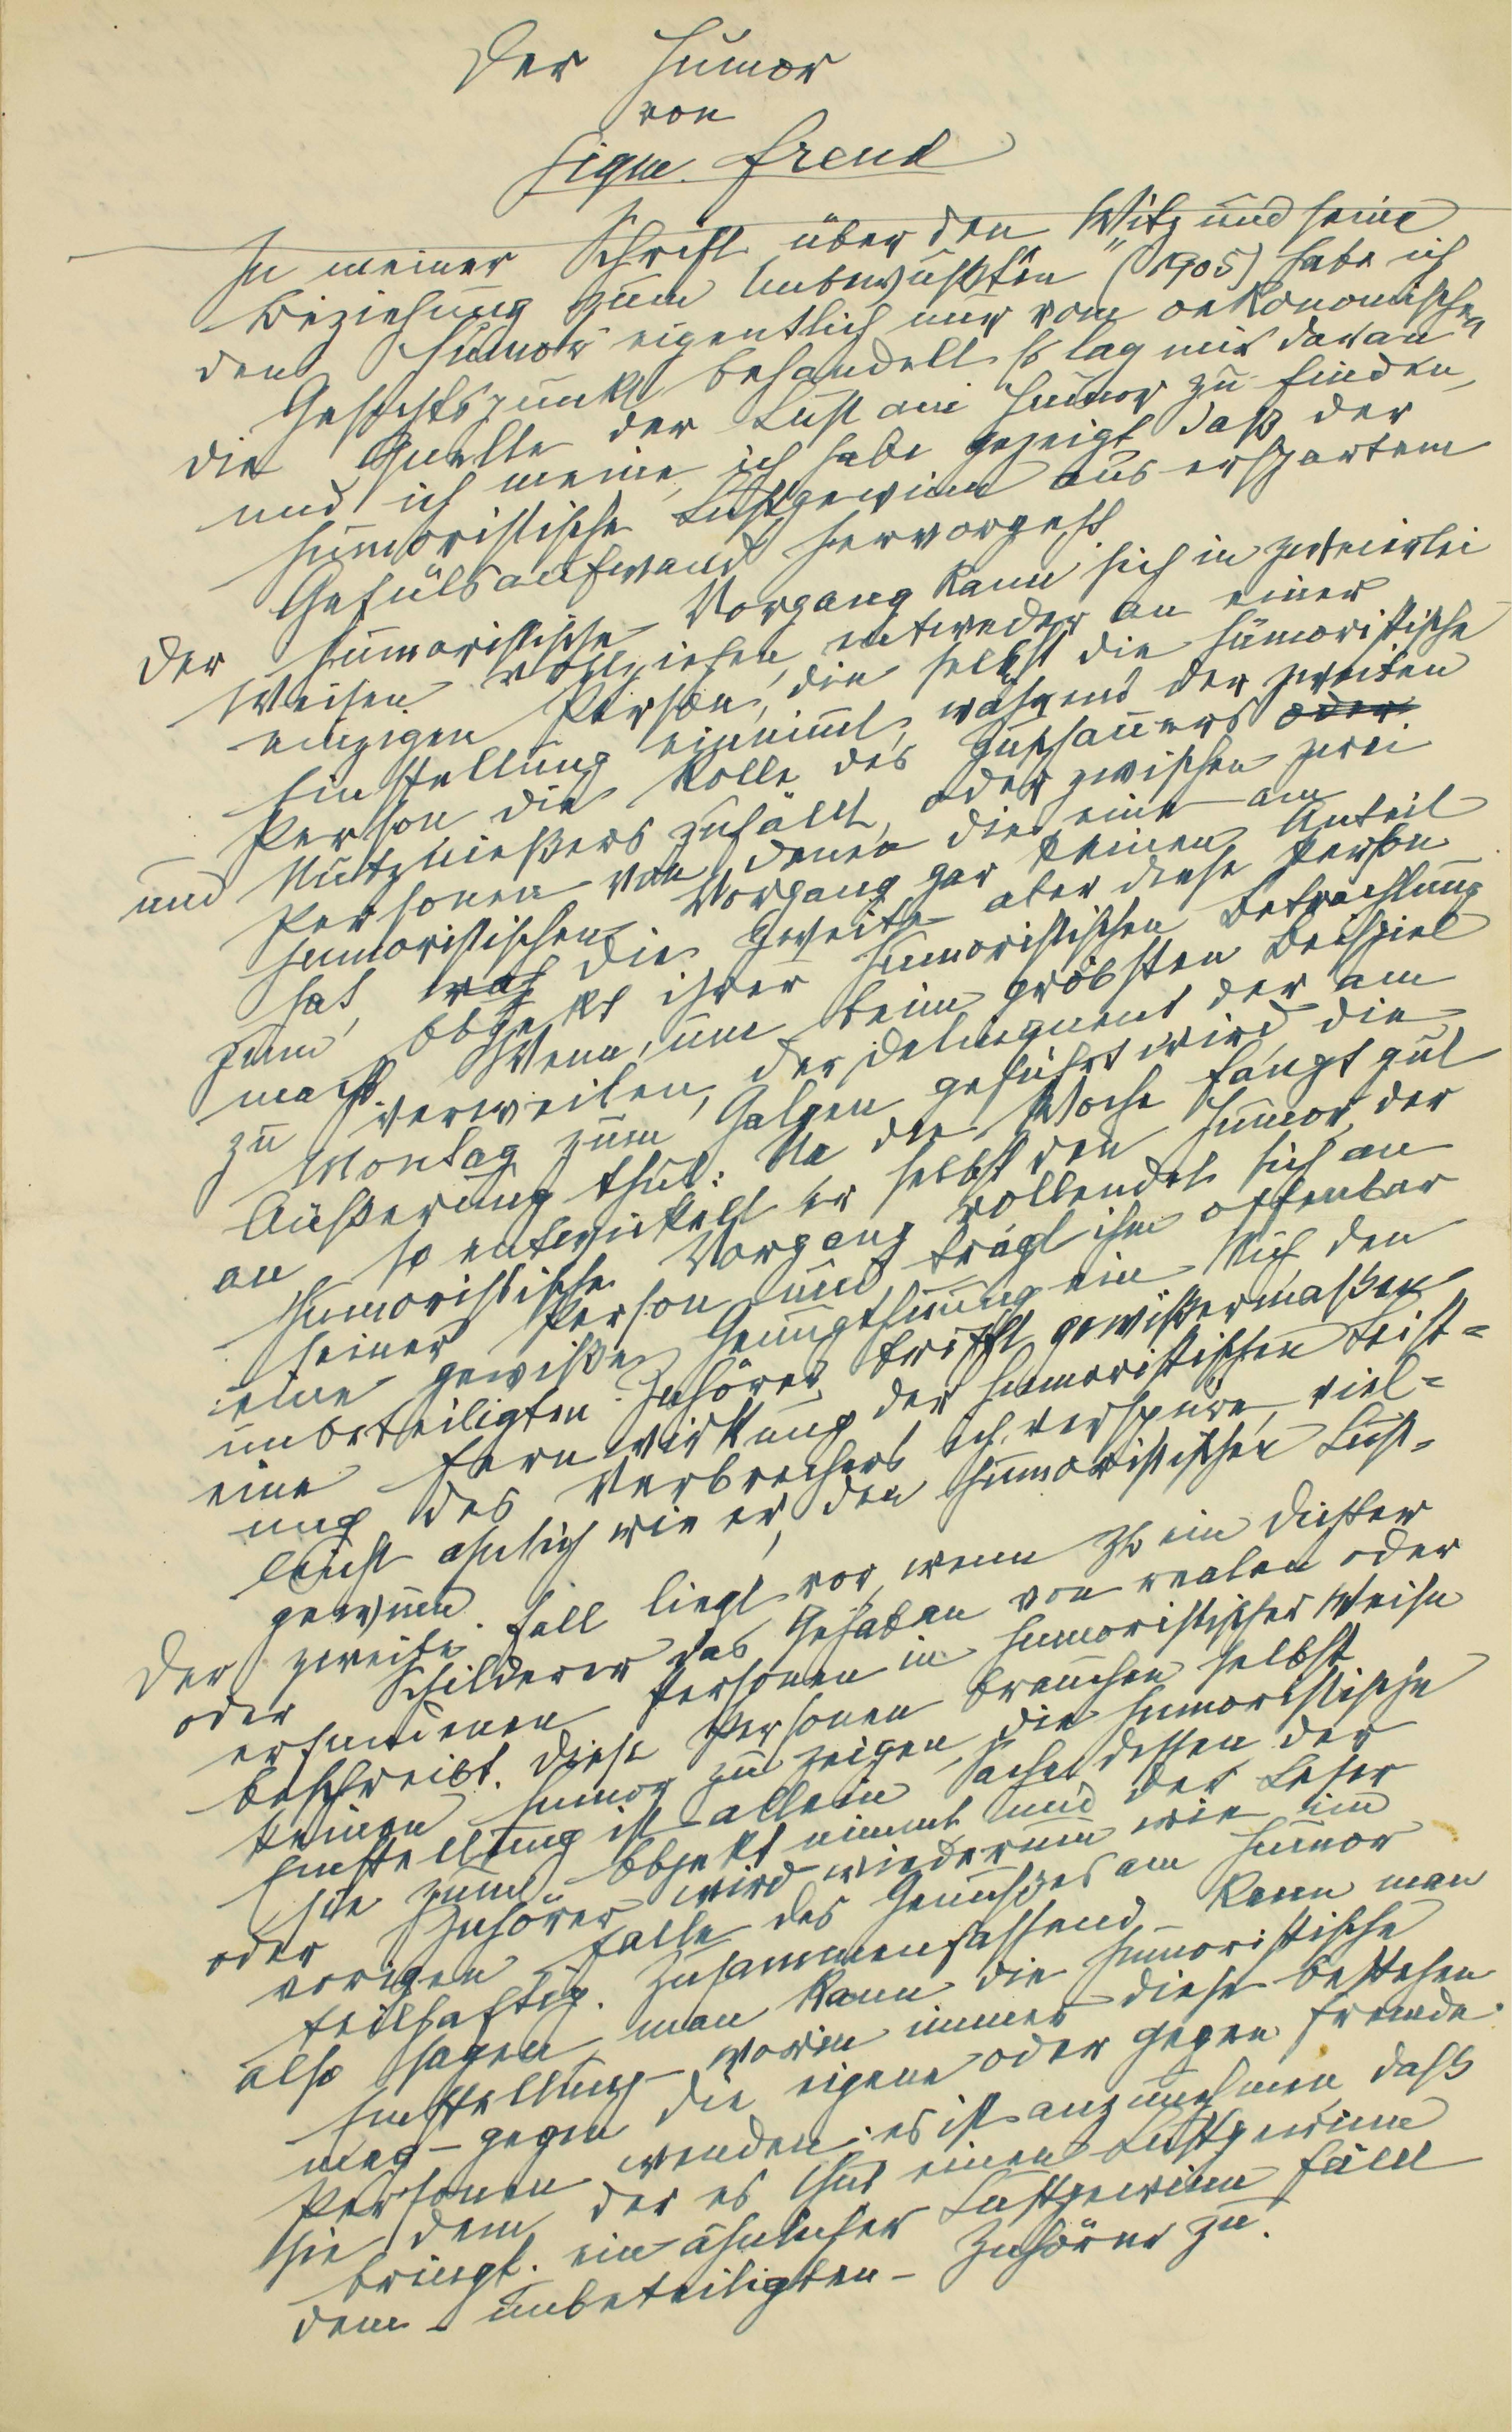 Der Humor
von
Sigm. Freud
In meiner Schrift über den Witz und seine
Beziehung zum Unbewußten" (1905) habe ich
den Humor eigentlich nur vom oekonomischen
Gesichtspunkt behandelt. Es lag mir daran
die Quelle der Lust am Humor zu finden,
und ich meine, ich habe gezeigt daß der
humoristische Lustgewinn aus erspartem
Gefülsaufwand hervorgeht.
Der humoristische Vorgang kann sich in zweierlei
Weisen vollziehen, entweder an einer
einzigen Person, die selbst die humoristische
Einstellung einnimt, während der zweiten
Person die Rolle des Zuschauers oder
und Nutznießers zufällt, oder zwischen zwei
Personen von denen die eine am
humoristischen Vorgang gar keinen Anteil
hat, die zweite aber diese Person
zum Objekt ihrer humoristischen Betrachtung
macht. Wenn, um beim gröbsten Beispiel
zu verweilen, der Delinquent der am
Montag zum Galgen geführt wird die
Äußerung thut: Na die Woche fängt gut
an so entwickelt er selbst den Humor, der
humoristische Vorgang vollendet sich an
seiner Person und trägt ihm offenbar
eine gewiße Genugthuung ein. Mich den
unbeteiligten Zuhörer trifft gewißermaßen
eine Fernwirkung der humoristischen Leist=
ung des Verbrechers ich verspüre, viel=
leicht ähnlich wie er, den humoristischen Lust=
gewinn.
Der zweite Fall liegt vor, wenn zb ein Dichter
oder Schilderer das Gehaben von realen oder
erfundenen Personen in humoristischer Weise
beschreibt. Diese Personen brauchen selbst
keinen Humor zu zeigen, die humoristische
Einstellung ist allein Sache dessen der
sie zum Objekt nimmt und der Leser
oder Zuhörer wird wiederum wie im
vorigen Falle des Genußes am Humor
teilhaftig. Zusammenfassend kann man
also sagen, man kann die humoristische
Einstellung – worin immer diese bestehen
mag – gegen die eigene oder gegen fremde
Personen wenden; es ist anzunehmen, daß
sie dem der es thut einen Lustgewinn
bringt. ein ähnlicher Lustgewinn fällt
dem – unbeteiligten – Zuhörer zu.